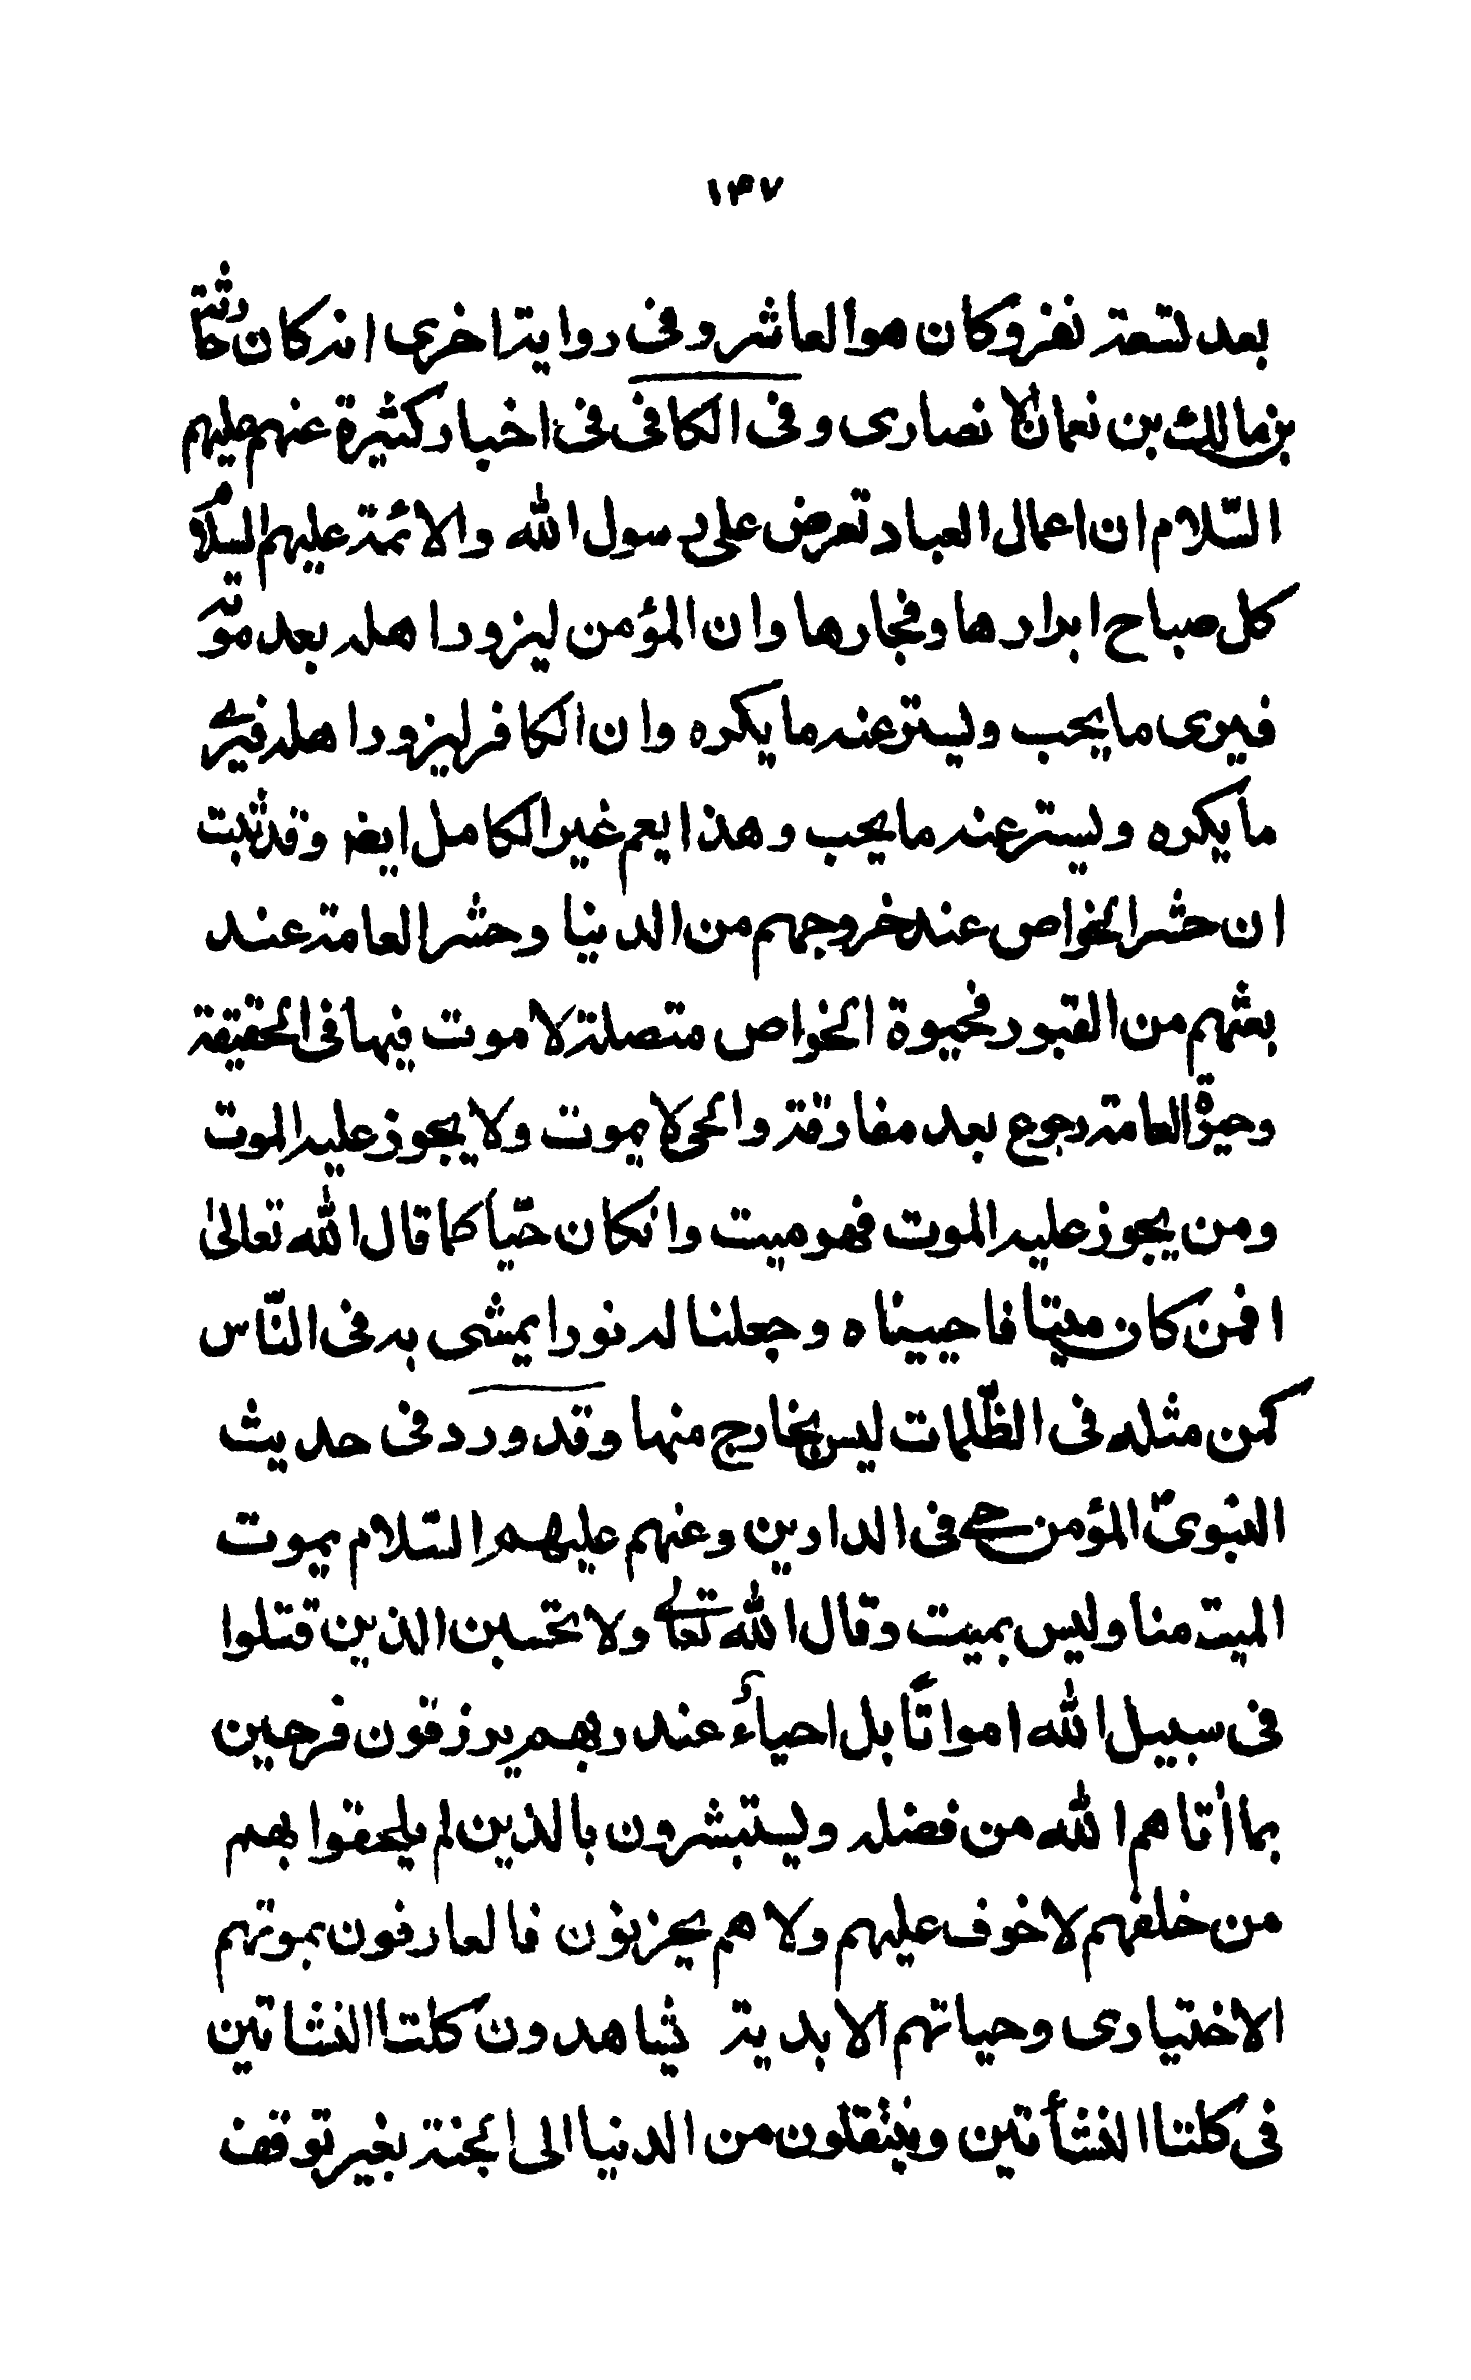 ۱۴۷
بعد تسعة نفر وكان هو العاشر وفى رواية اخرى انه كان حارثة
بن مالك بن نعمان الانصارى وفى الكافى فى اخبار كثيرة عنهم عليهم
السّلام ان اعمال العباد تعرض على رسول الله والائمة عليهم السلام
كل صباح ابرارها وفجارها وان المؤمن ليزور اهله بعد موته
فيرى ما يحب ويستر عنه ما يكره وان الكافر ليزور اهله فيرى
ما يكره ويستر عنه ما يحب وهذا يعم غير الكامل ايضا وقد ثبت
ان حشر الخواص عند خروجهم من الدنيا وحشر العامة عند
بعثهم من القبور فحيوة الخواص متصلة لا موت فيها فى الحقيقة
وحيوة العامة رجوع بعد مفارقة والحى لا يموت ولا يجوز عليه الموت
ومن يجوز عليه الموت فهو ميت وان كان حيّا كما قال الله تعالىٰ
افمن كان ميتا فاحييناه وجعلنا له نورا يمشى به فى النّاس
كمن مثله فى الظّلمات ليس بخارج منها وقد ورد فى حديث
النبوىّ المؤمن حى فى الدارين وعنهم عليهم السّلام يموت
الميت منا وليس بميت وقال الله تعالى ولا تحسبن الذين قتلوا
فى سبيل الله امواتًا بل احياءٌ عند ربهم يرزقون فرحين
بما اتاهم الله من فضله ويستبشرون بالذين لم يلحقوا بهم
من خلفهم لا خوف عليهم ولا هم يحزنون فالعارفون بموتهم
الاختيارى وحياتهم الابدية يشاهدون كلتا النشاتين
فى كلتا النشأتين وينتقلون من الدنيا الى الجنة بغير توقف